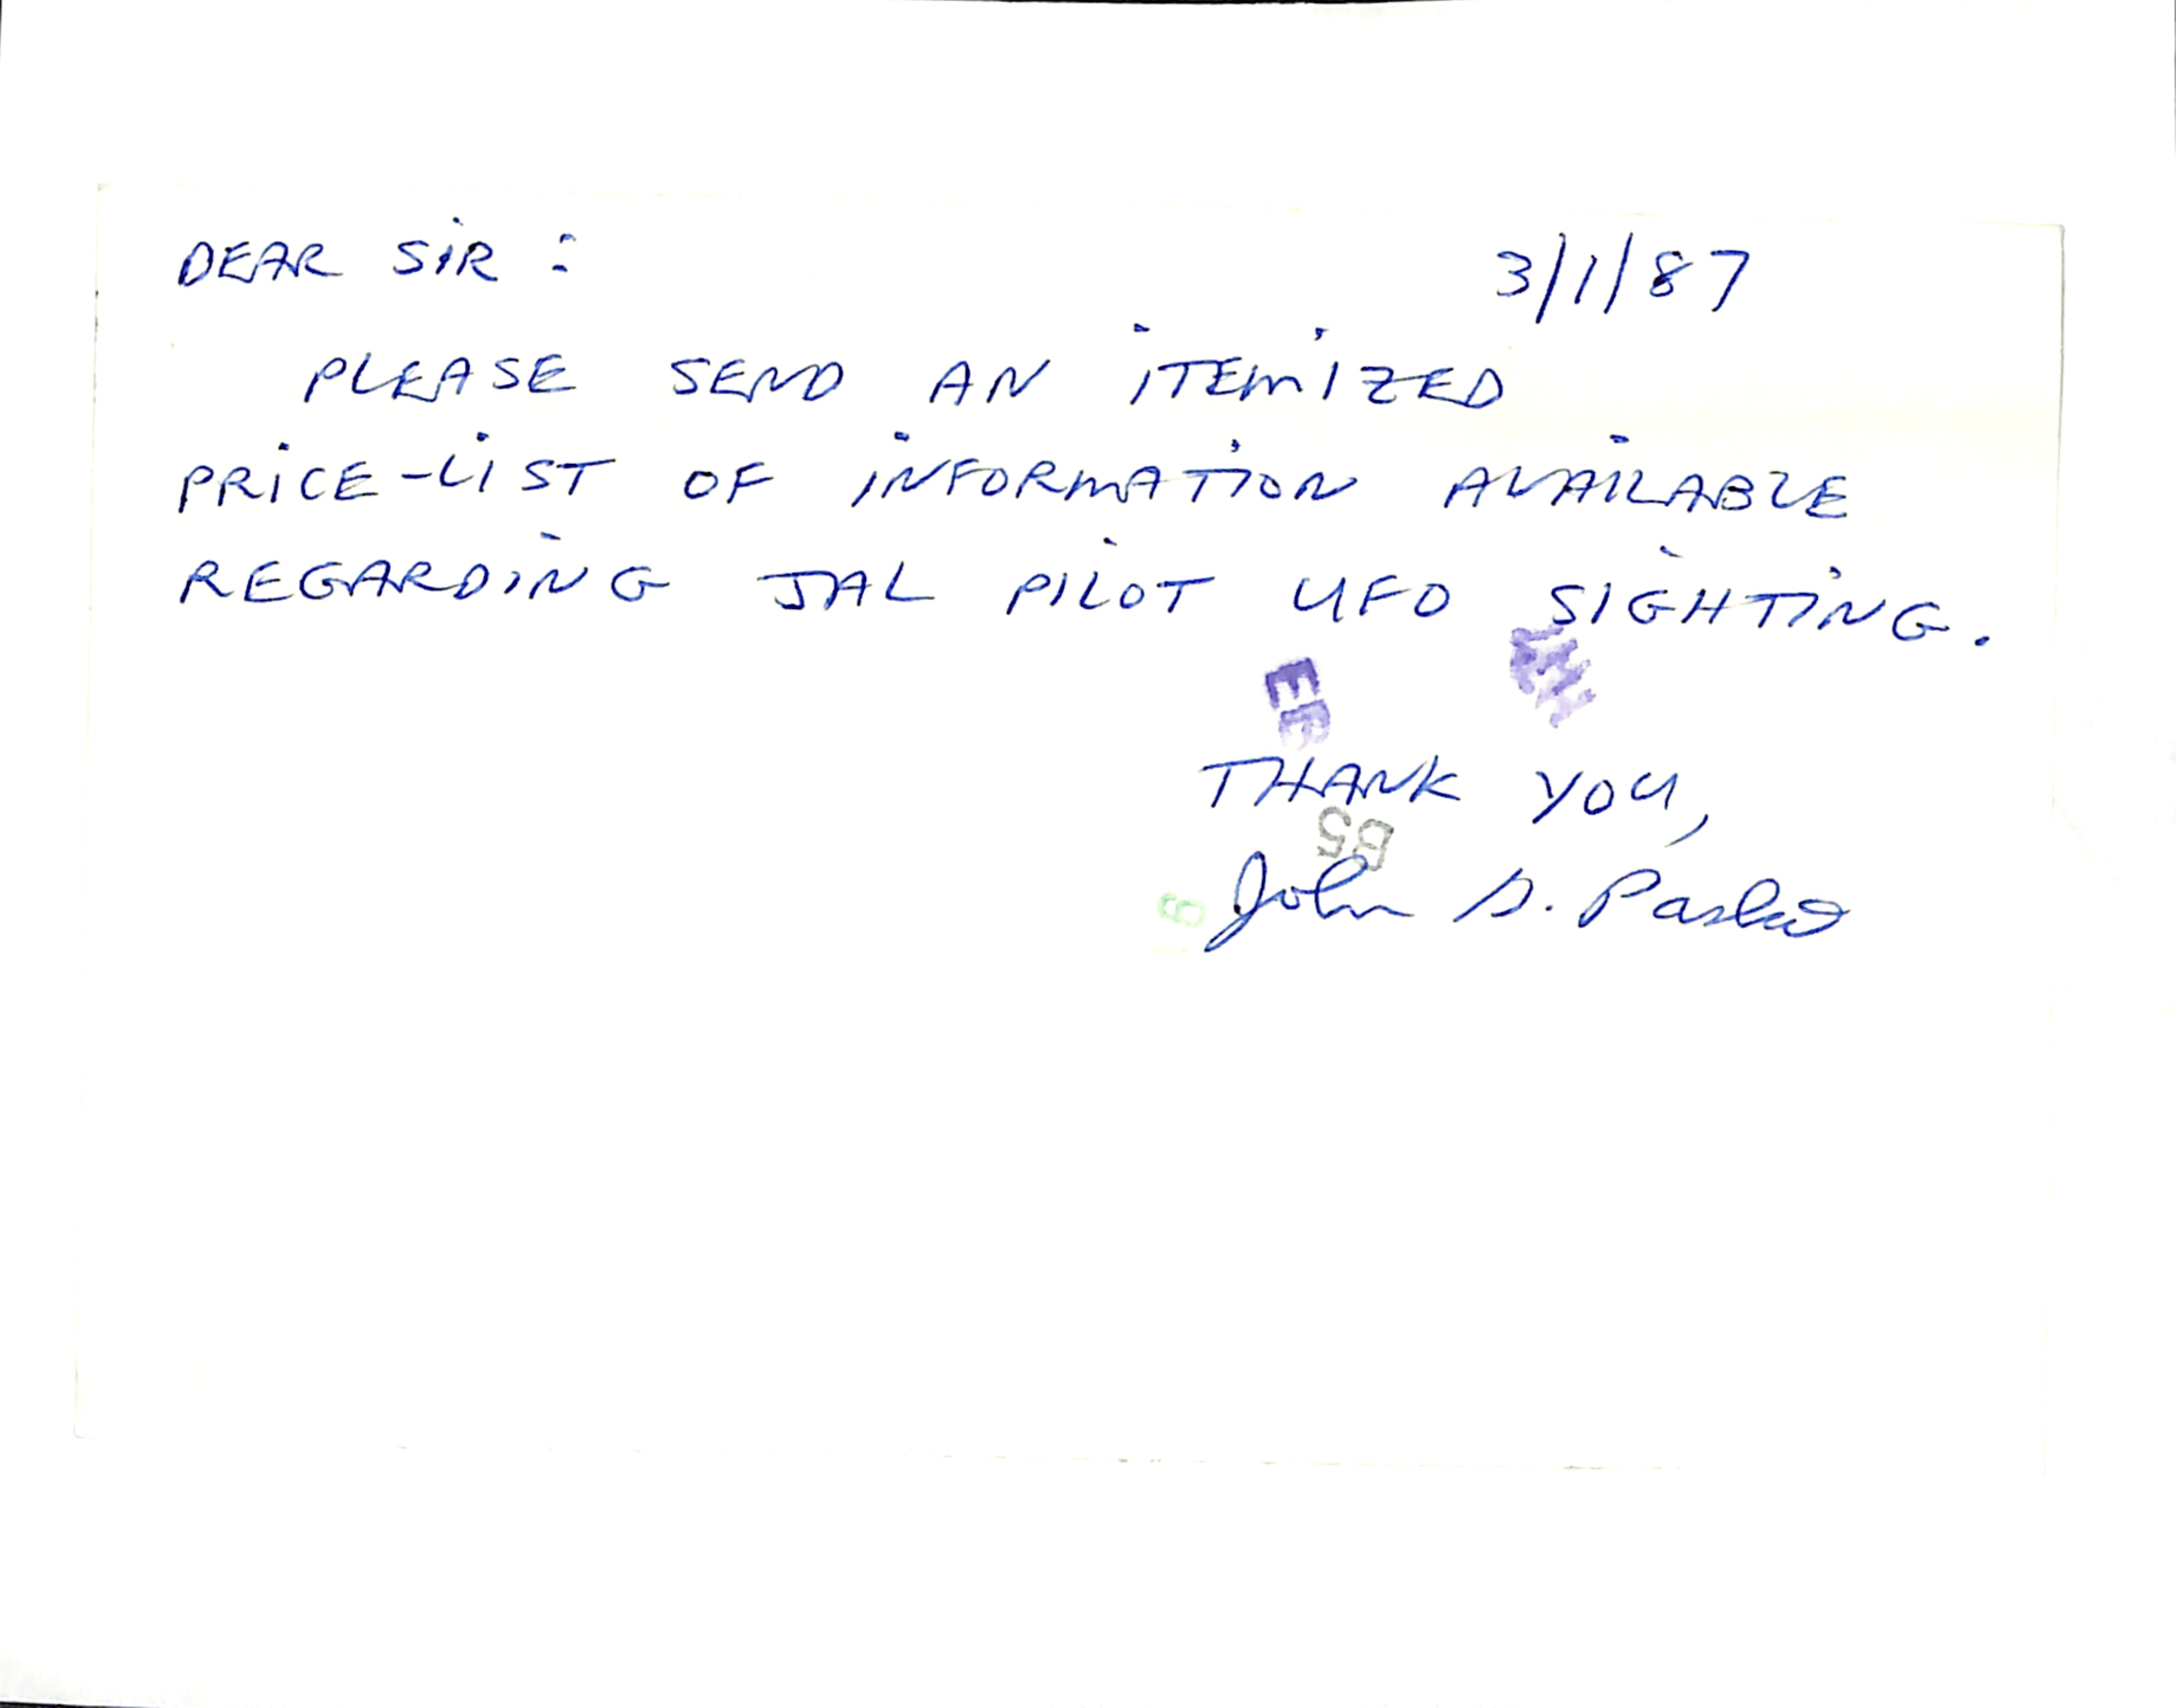 DEAR SIR : 3/1/87
PLEASE SEND AN ITEMIZED
PRICE-LIST OF INFORMATION AVAILABLE
REGARDING JAL PILOT UFO SIGHTING.
THANK YOU,
B5
John D.